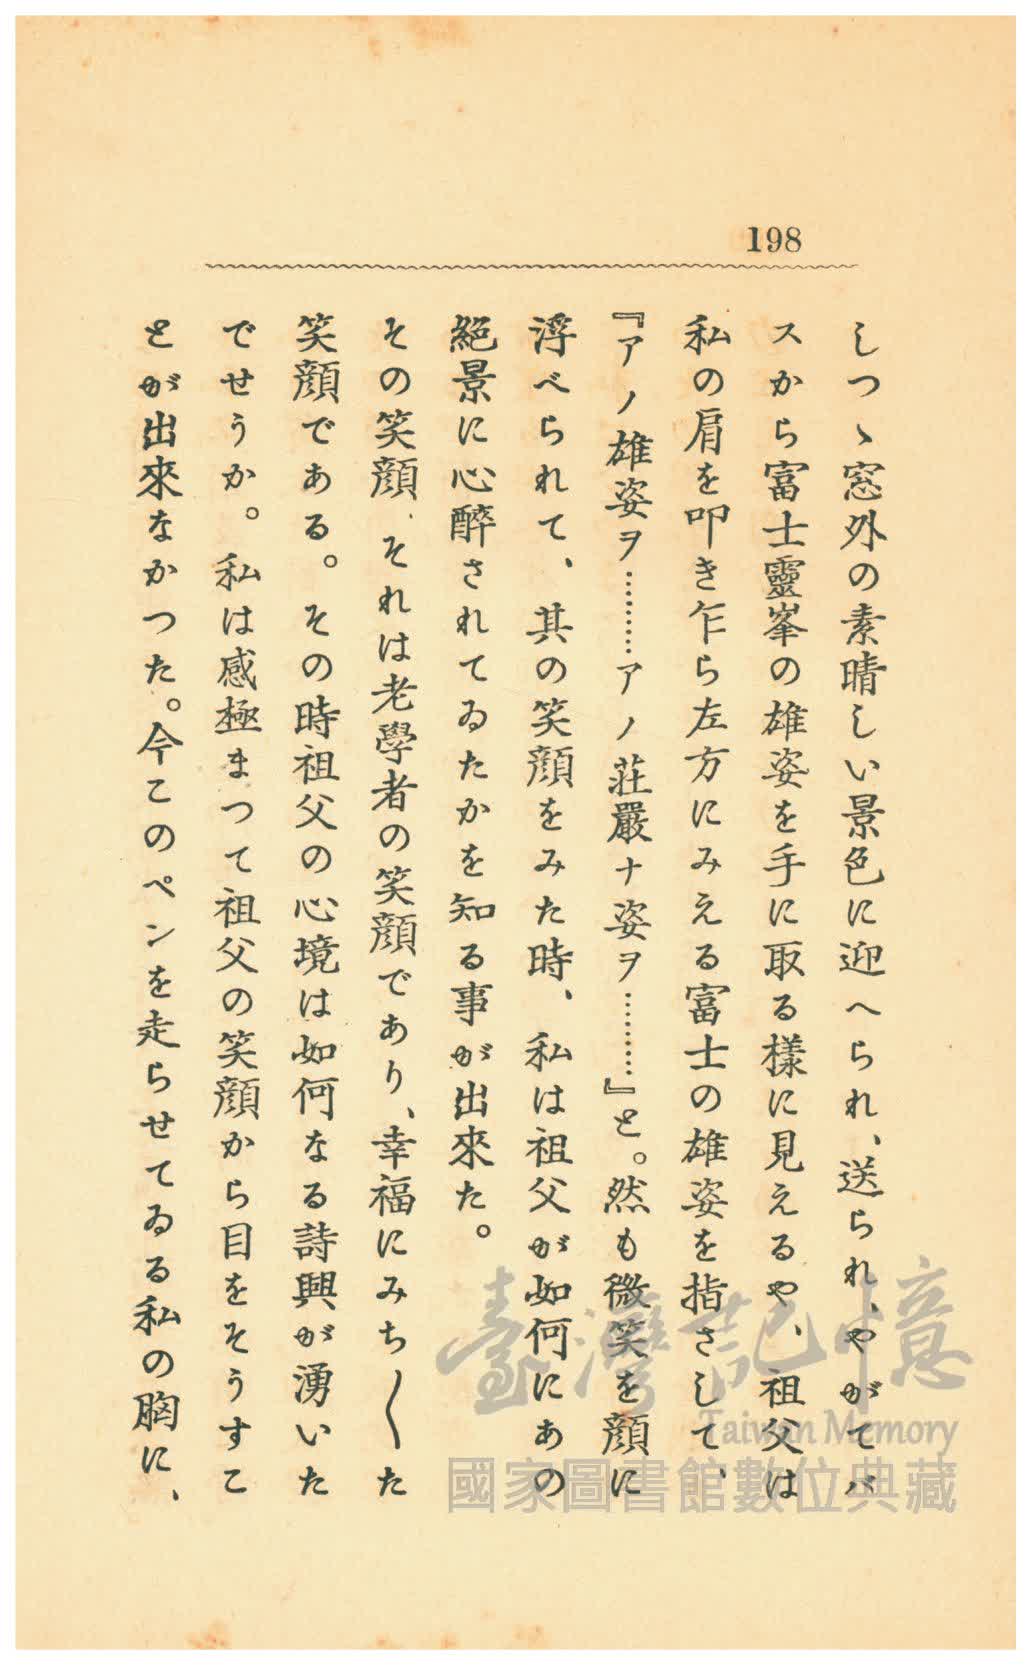 198
しつゝ窓外の素晴しい景色に迎へられ、送られ、やがてバ
スから富士靈峯の雄姿を手に取る樣に見えるや、祖父は
私の肩を叩き乍ら左方にみえる富士の雄姿を指さして、
『アノ雄姿ヲ………アノ莊嚴ナ姿ヲ………』と。然も微笑を顔に
浮べられて、其の笑顔をみた時、私は祖父が如何にあの
絕景に心醉されてゐたかを知る事が出來た。
その笑顔、それは老學者の笑顔であり、幸福にみち〱た
笑顔である。その時祖父の心境は如何なる詩興が湧いた
でせうか。私は感極まつて祖父の笑顔から目をそうすこ
とが出來なかつた。今このペンを走らせてゐる私の胸に、
臺灣記憶
Taiwan Memory
國家圖書館數位典藏